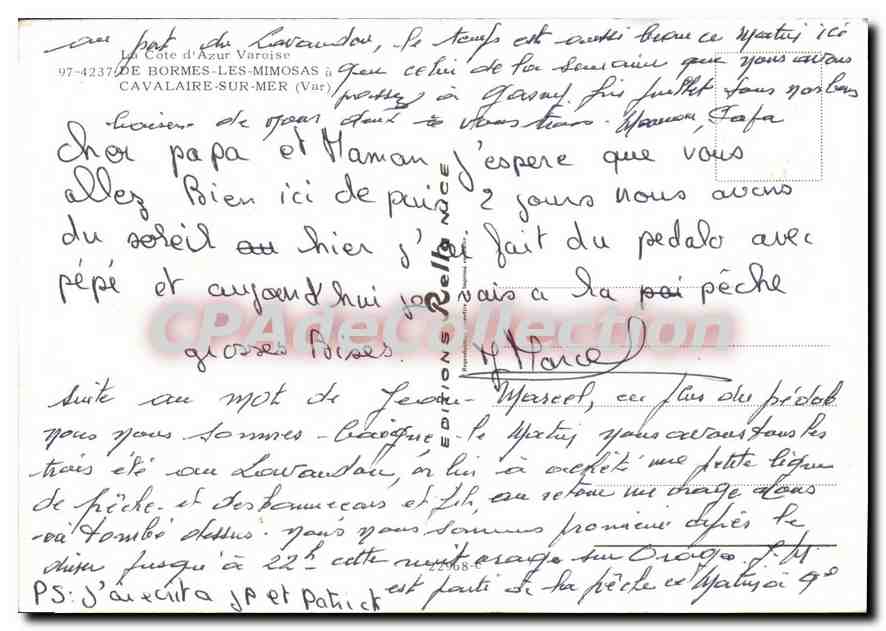 au port du Lavandou, le temps est aussi beau ce matin ici
La Côte d'Azur Varoise
97-4237 DE BORMES-LES-MIMOSAS à
CAVALAIRE-SUR-MER (Var)
que celui de la semaine que nous avons
passez à Gasny fin juillet tous nos bons
baisers de nous deux à vous trois. Maman, Papa
cher papa et Maman j'espere que vous
allez Bien ici de puis 2 jours nous avons
du soleil hier j'ai fait du pedalo avec
pépé et aujourd'hui je vais a la pêche
grosses Bises.
J Marcel
EDITIONS Rella NICE
CPAdeCollection
suite au mot de Jean-Marcel, en plus du pédalo
nous nous sommes baigné le matin nous avons tous les
trois été au Lavandou, on lui à acheté une petite ligne
de pêche et des hameçons et fil, au retour un orage
à tombé dessus. nous nous sommes promené après le
diner jusqu'à 22h cette nuit orage sur orage. J.M
22968-C
est parti de la pêche ce matin à 9h
PS: j'ai ecrit a JP et Patrick